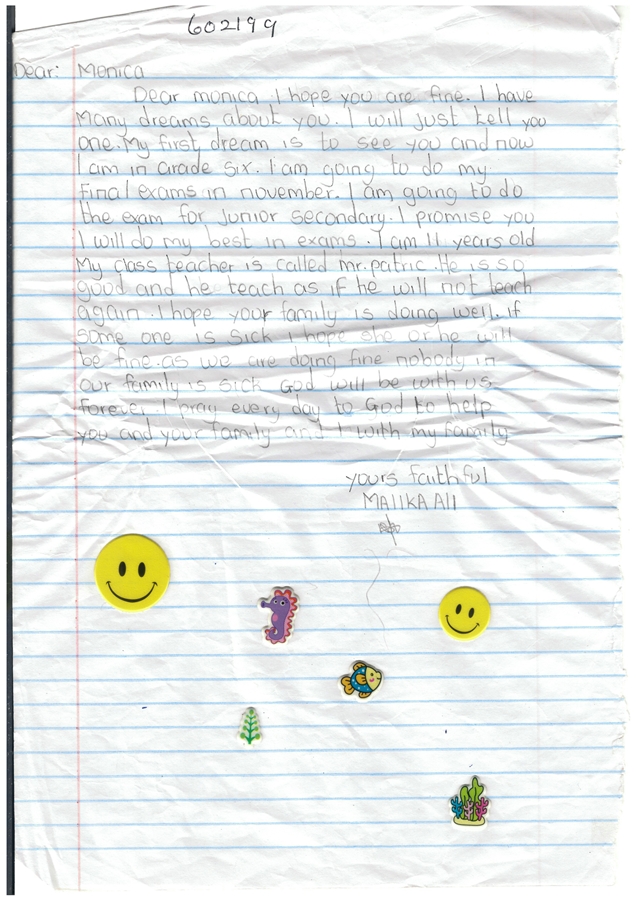 602199
Dear: Monica
Dear monica I hope you are fine. I have
Many dreams about you. I will just tell you
one. My first dream is to see you and now
I am in Grade six. I am going to do my
final exams in november. I am going to do
the exam for Junior secondary. I promise you
I will do my best in exams. I am 11 years old
My class teacher is called mr. patric. He is so
good and he teach as if he will not teach
again. I hope your family is doing well. if
some one is sick I hope she or he will
be fine. as we are doing fine nobody in
our family is sick. God will be with us
forever. I pray every day to God to help
you and your family and I with my family
yours faithful
MAlIKA AlI